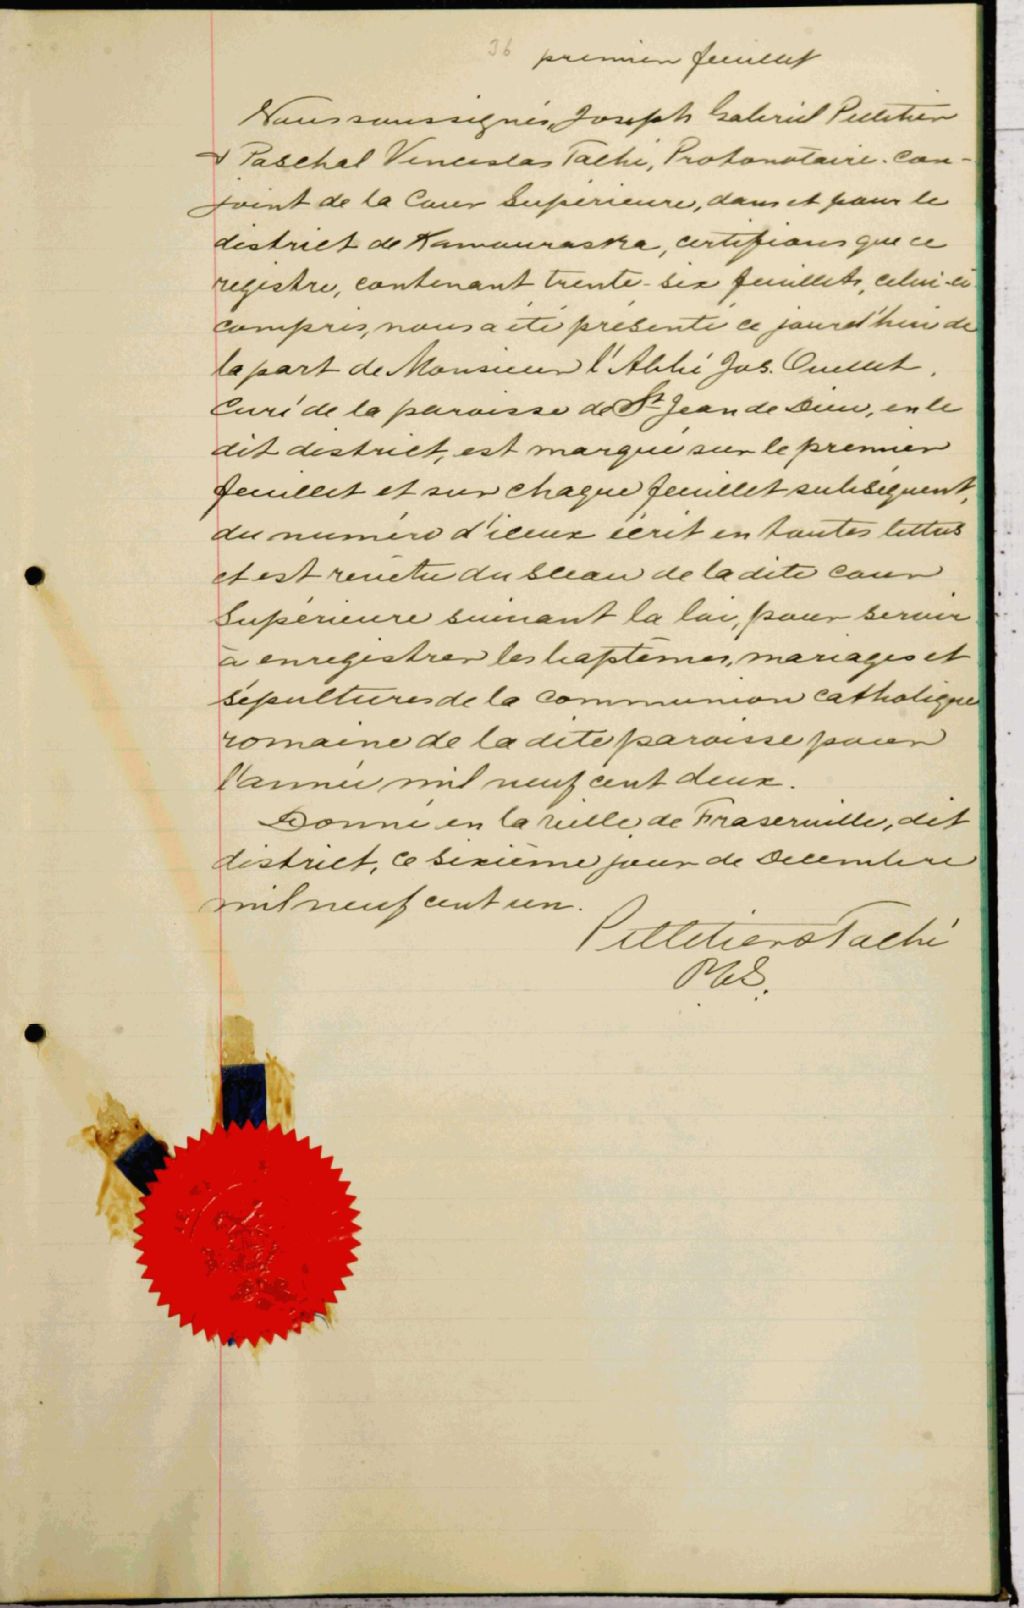 36 premier feuillet
Nous soussignés, Joseph Gabriel Pelletier
& Paschal Venceslas Taché, Protonotaire-con-
joint de la Cour Supérieure, dans et pour le
district de Kamouraska, certifions que ce
régistre, contenant trente-six feuillets, celui-ci
compris, nous a été présenté ce jourd'hui de
la part de Monsieur l'Abbé Jos. Ouellet,
Curé de la paroisse de St Jean de Dieu, en le
dit district, est marqué sur le premier
feuillet et sur chaque feuillet subséquent,
du numéro d'iceux écrit en toutes lettres
et est revêtu du sceau de la dite cour
Supérieure suivant la loi, pour servir
à enregistrer les baptêmes, mariages et
sépultures de la communion catholique
romaine de la dite paroisse pour
l'année mil neuf cent deux.
Donné en la ville de Fraserville, dit
district, ce sixième jour de Décembre
mil neuf cent un.
Pelletier & Taché
P.C.S.